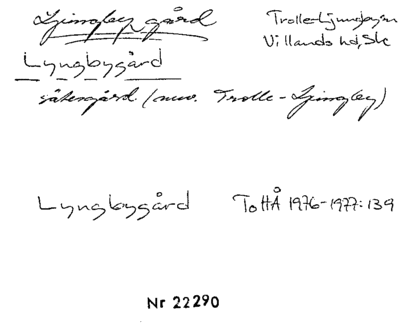 Ljungby gård Trolle-Ljungbysn
Villands hd, Sk
Lyngbygård
sätesgård (nuv. Trolle-Ljungby)
Lyngbygård ToHÅ 1976-1977:139
Nr 22290